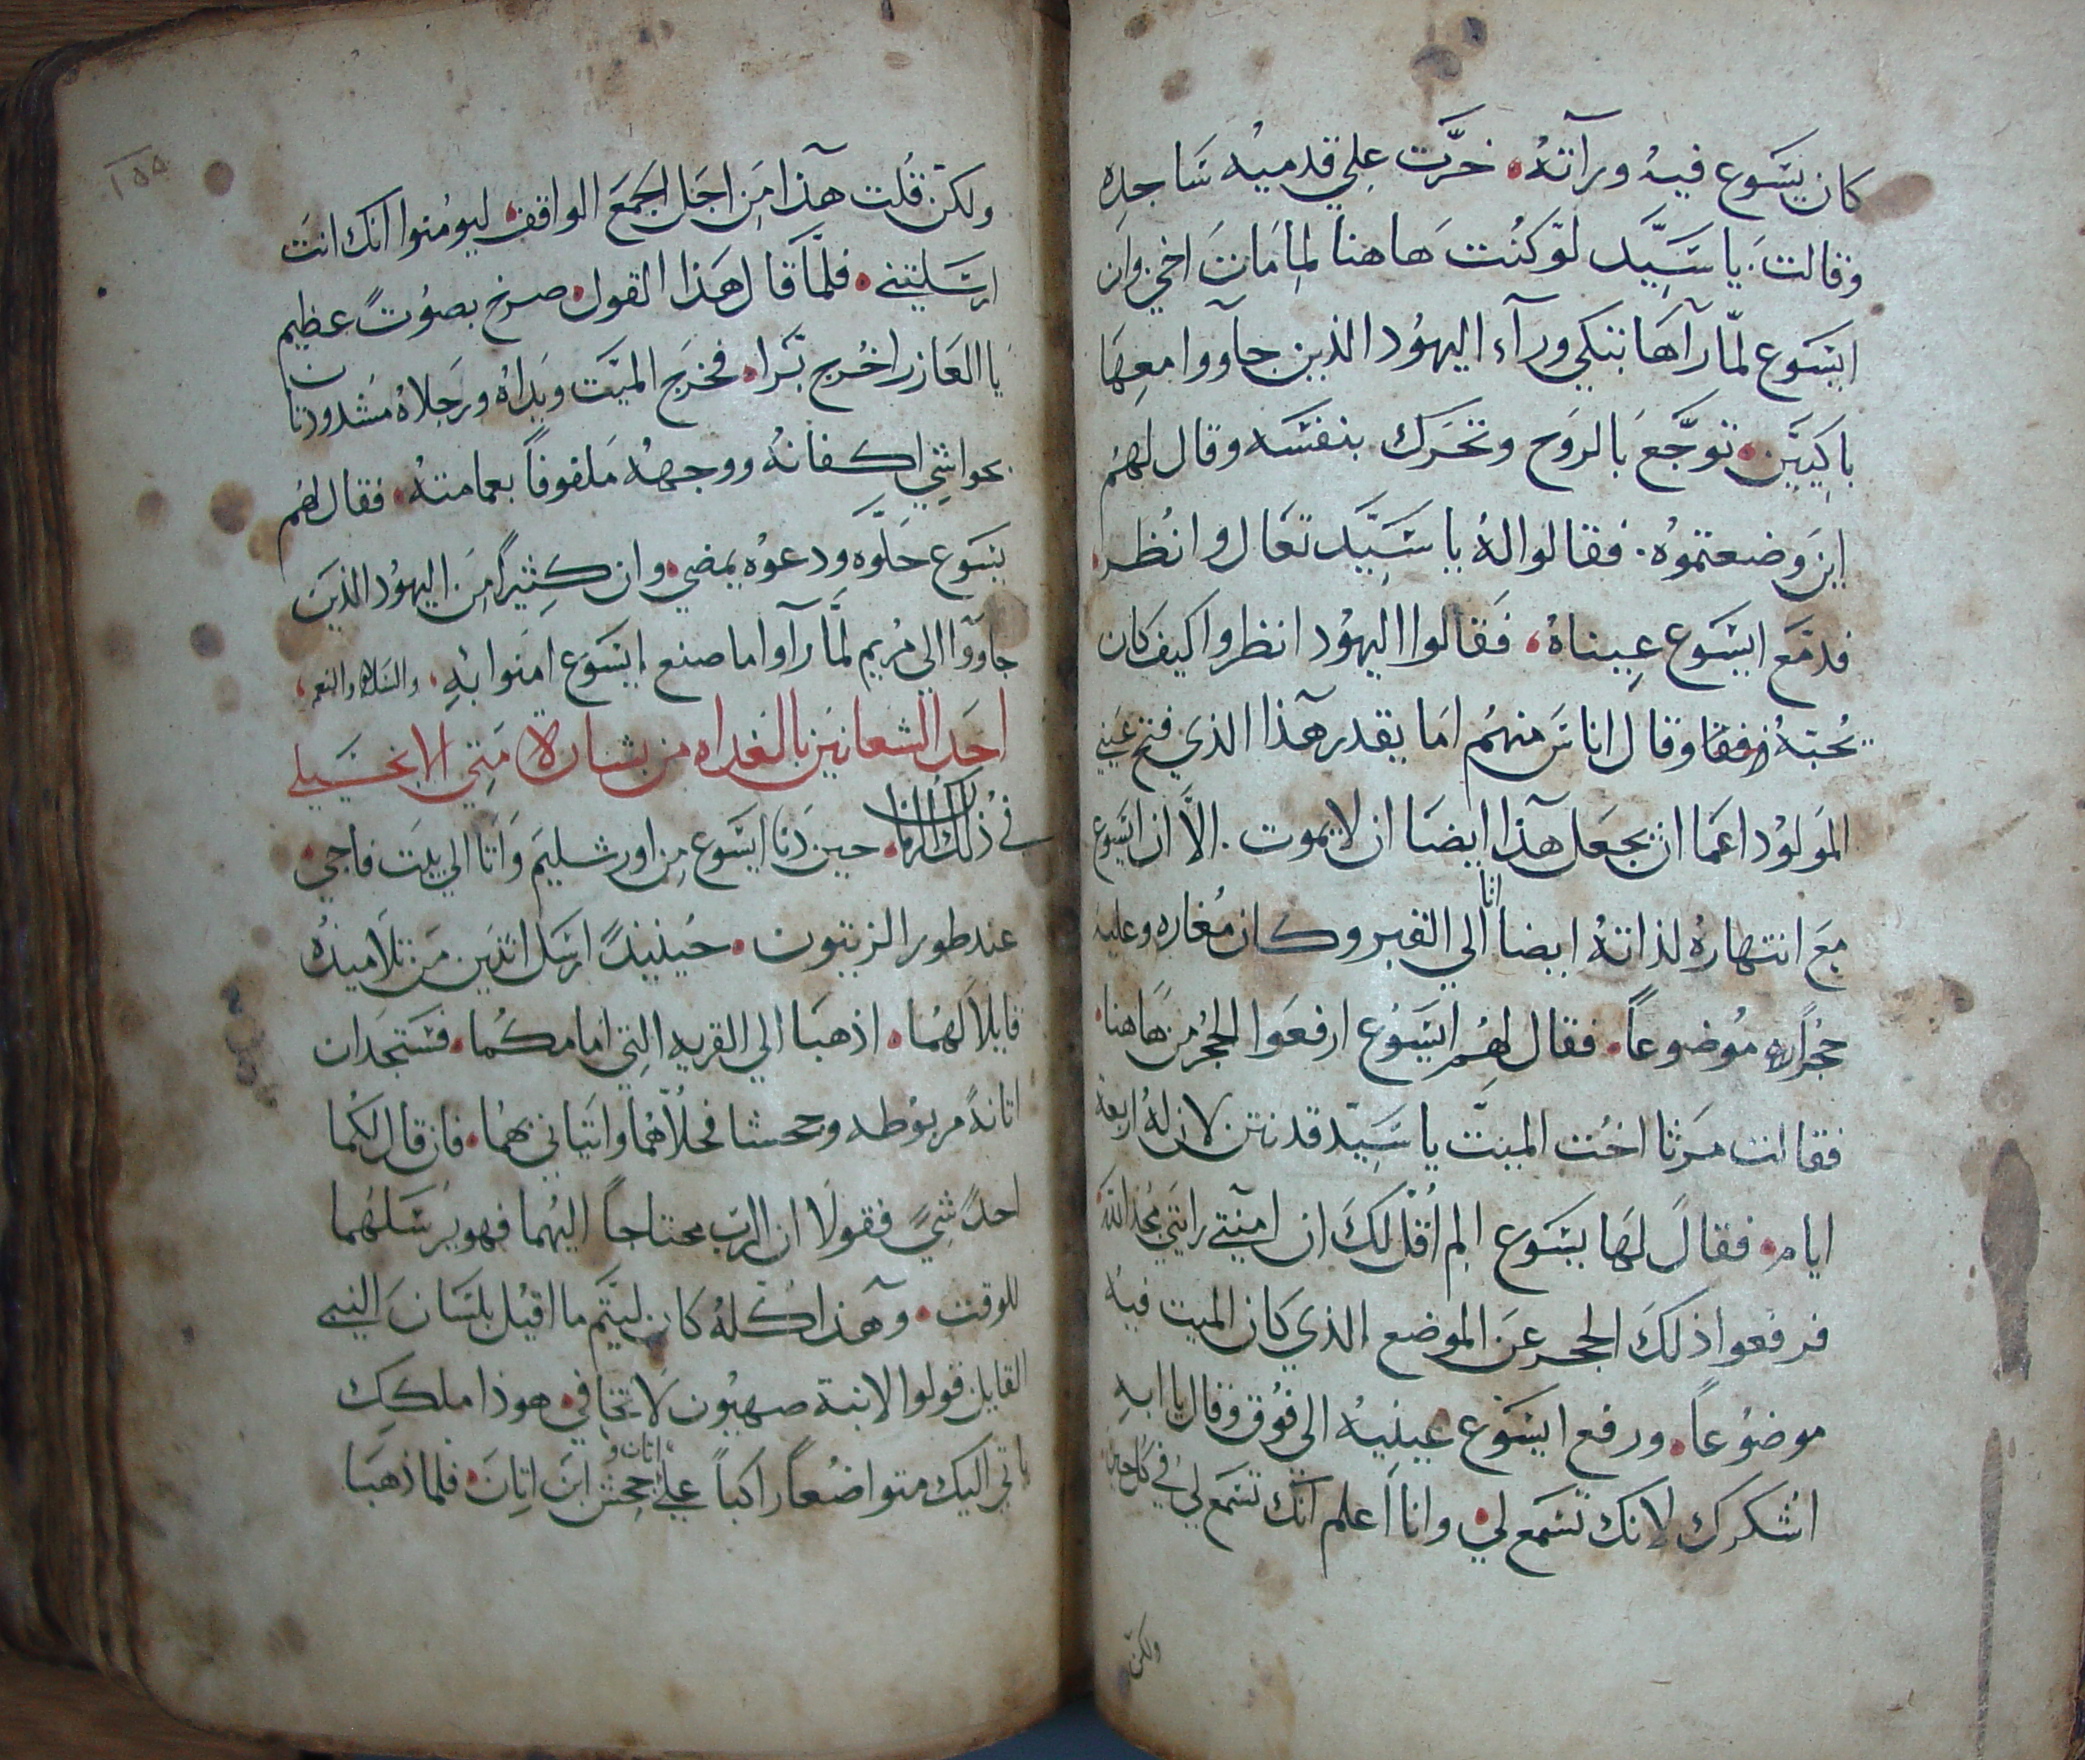 كان يسَوع فيهْ ورآتهُ، خرَّت علي قدميْه سَاجده
وقالت، يا سَيِّد لوَ كنُت هَاهنا لما مَاتَ اخي وان
ايسَوع لمّا رآهَا تبكي ورآء اليهوُد الذين جآووا معهَا
باكيين، توجَّعَ بالروَح وتحَرك بنفسَه وقال لهمُ
اين وضعتموُه. فقالوا لهُ يا سَيِّد تعَال وانُظر
فدمَع ايسَوع عيناهُ، فَقالوا اليهوْد انظروا كيف كان
يحُبهُ، وقال اناسَ منهمُ امَا يقدر هآذا الذي فتح عَيني
الموَلوُد اعمَا ان يجعَل هآذا ايضَا ان لا يموت. الاَّ ان ايسَوع
معَ انتهارهُ لذاتهُ ايضاً اتا الي القبر وكان مُغاره وعليه
حجُراً موُضوعاً، فقال لهمُ ايسَوُع ارفعَوا الحجرُ من هَاهنا،
فقالت مرَثا اخُت الميتّ يا سَيّد قد نتن لان لهُ اربعة
ايام، فقالَ لهَا يسَوع الم اقُل لكَ ان امنتي رايتي مجَد الله
فرفعوا ذلكَ الحجر عَن الموضع الذي كان الميت فيهْ
موضوُعاً، ورفع ايسَوَع عينيهْ الي فوُق وقال يا ابهِ
اشكرك لانك تسَمَع لي، وانا اَعلم انَك تسَمَع لي في كل حين
ولكن
١٥٥
ولكن قُلت هآذا منَ اجَل الجمَع الواقف، ليوُمنوا انَك انتَ
ارسَلتني، فلمّا قَال هَذا القول، صرخ بصوُتً عظيم
يا العَازر اخُرج برَّا، فخرَج الميَت ويدَاهُ ورَجلاهُ مشدودتان
بحواشي اكفانهُ ووجههُ مَلفوفاً بعمامتهُ، فقال لهمُ
يسَوع حَلّوه ودعوْه يمضي، وان كثيراً منَ اليهوُد الذينَ
جاووا الي مرُيم لمَّا رآوا ما صنع ايسَوَع امنوا بهِ، والسَلاه والنعمه،
احَد الشعانين بالغداه من بشارة متي الانجيلي
في ذلك الزمان، حين دَنا ايسَوع من اورشليمَ واتَا الي بيت فاجي،
عند طور الزيتون، حيُنيذً ارسَل اثنَين منَ تلاميذهُ
قايلاَ لهُما، اذهبَا الي القريه التي امامكمُا، فسَتجدَان
اتانهً مربوُطه وجحشا فحُلاّهمُا وايتيَاني بهمُا، فان قال لكمُا
احدً شيً فقولاَ ان الربَ محتاجاً اليهُما فهو يرُسَلهُما
للوقت، وهآذا كلهُ كان ليتمَ ما اقيْل بلسَانَ النبي
القايل، قولوا لابنة صهيوُن لا تخافي، هوذا ملككِ
ياتي اليك متواضعُاً راكباً علي اتان وجحش ابنَ اتانَ، فلما ذهبَا